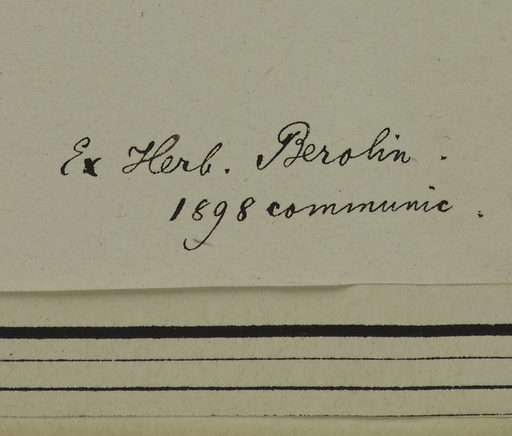 Ex Herb. Berolin.
1898 communic.